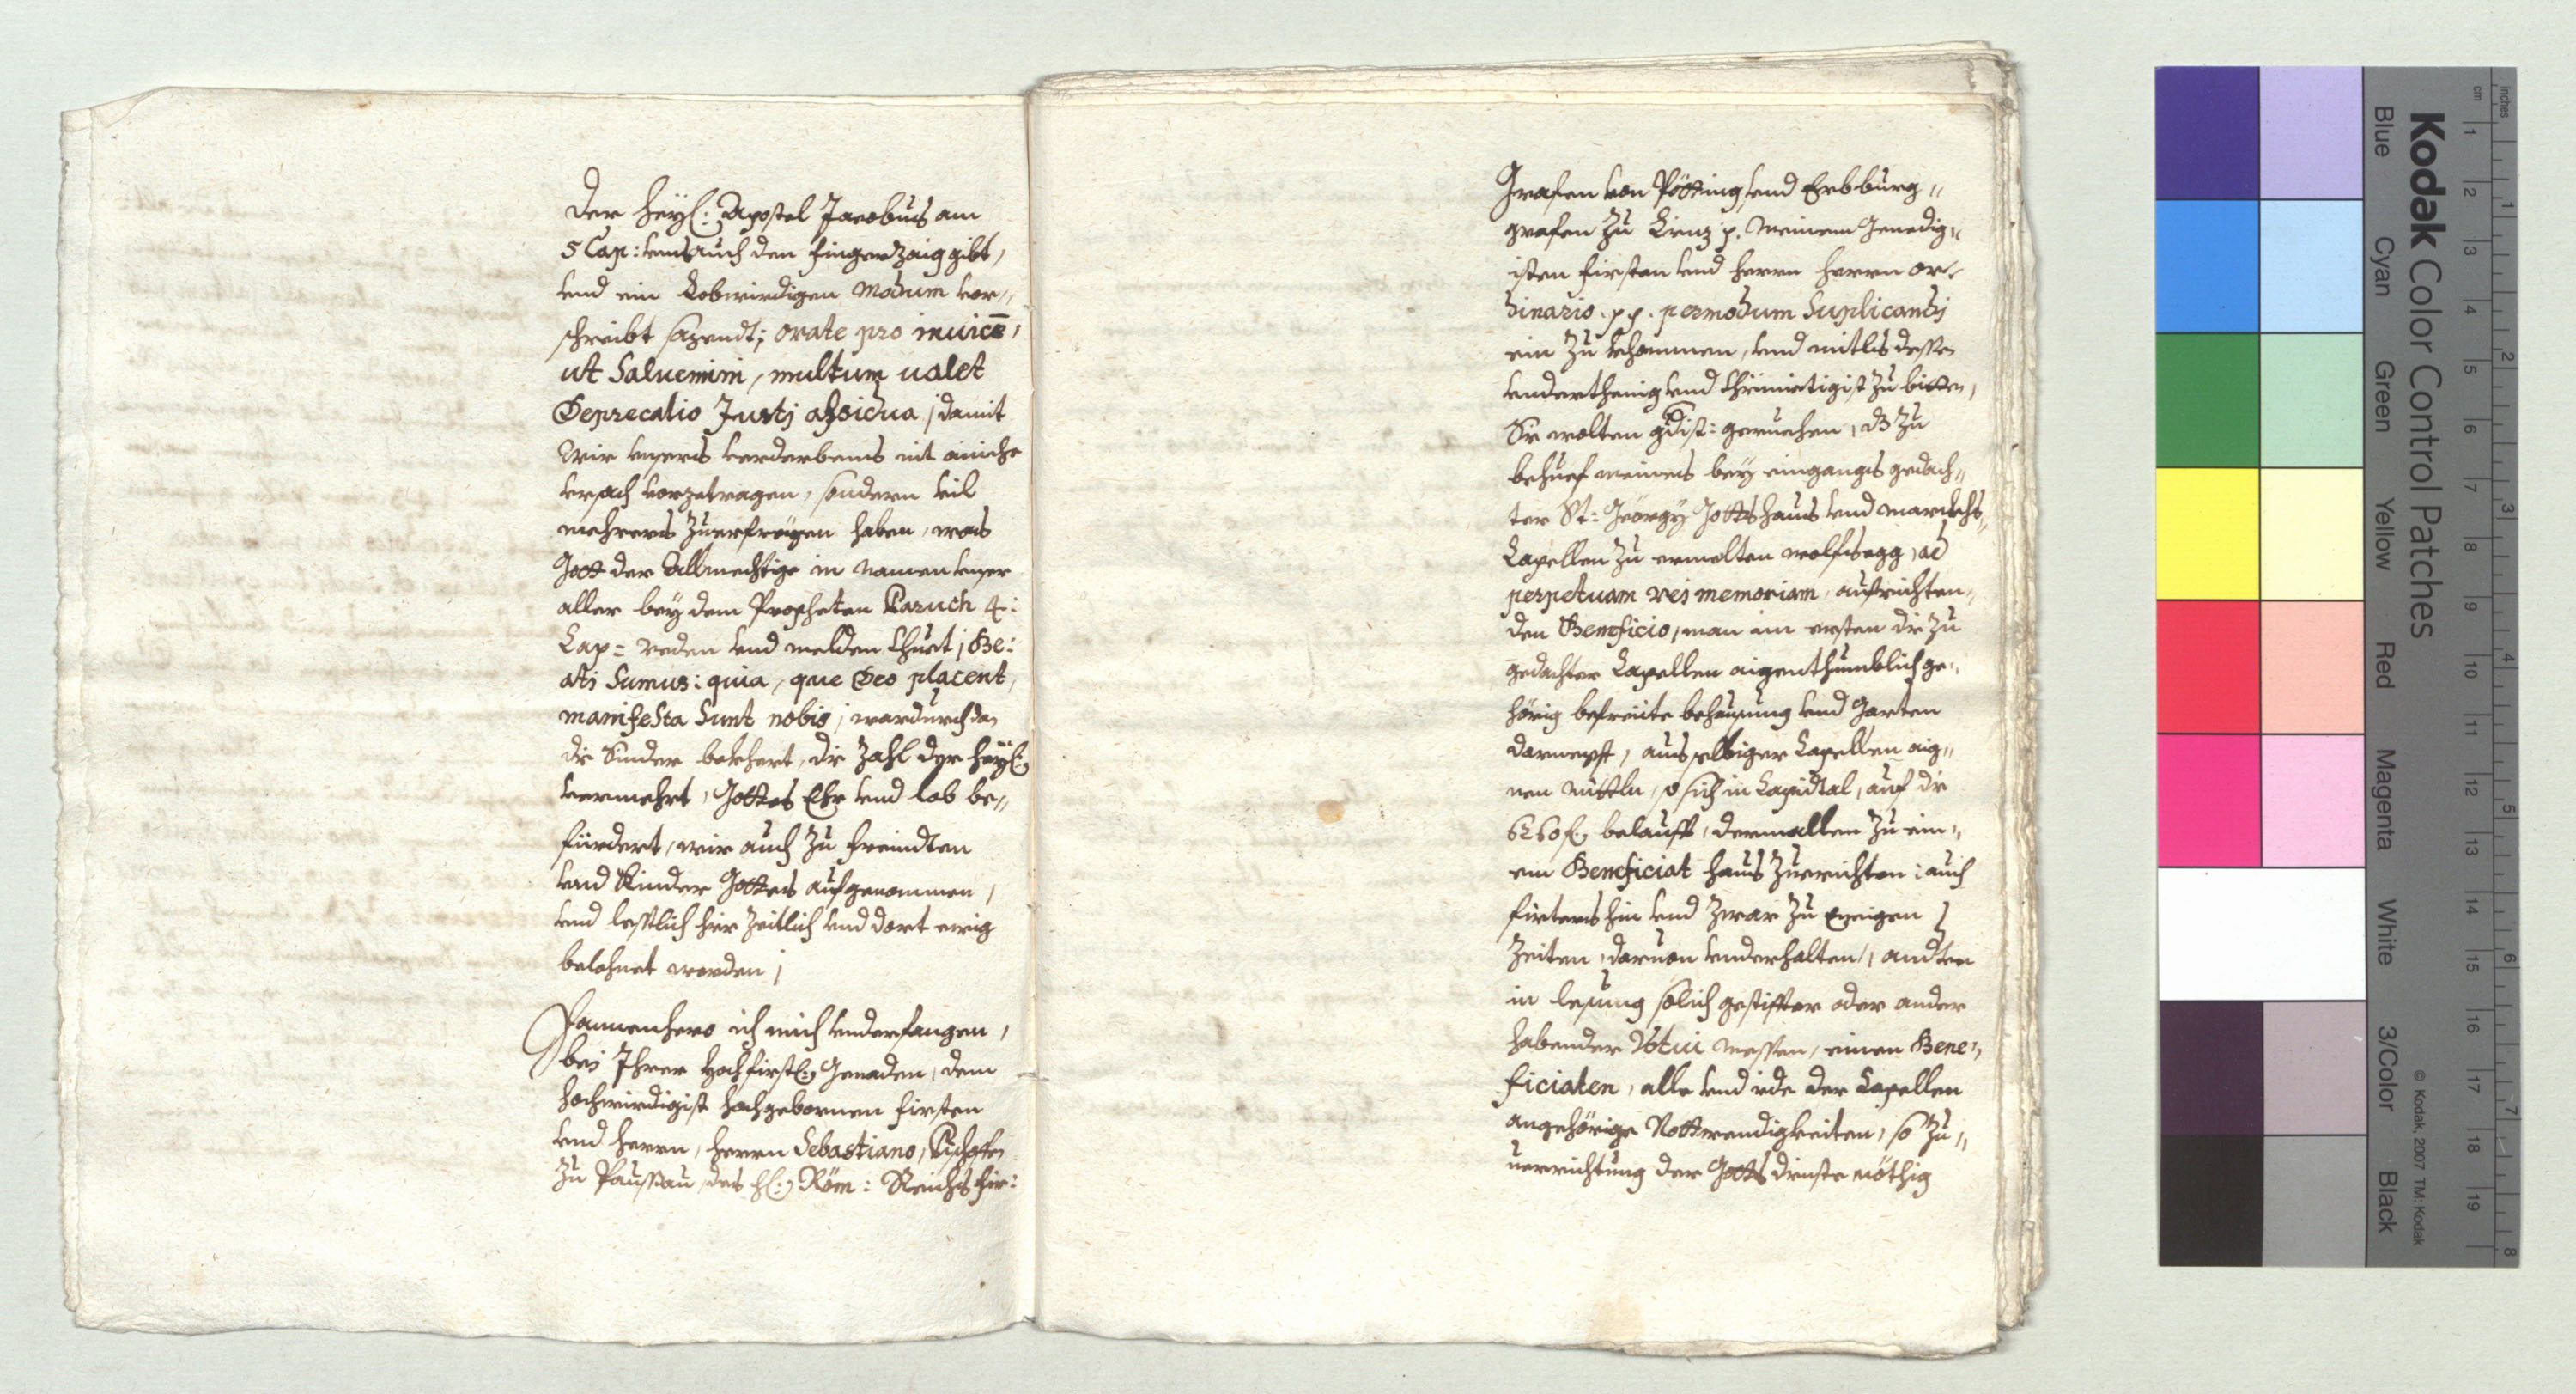 Der Heyl: Apostel Jacobus am
5 Cap: vns auch den fingerzaig gibt,
vnd ein Lobwirdigen Modum vor„
schreibt sagendt; orate pro inuicē,
ut Saluemini, multum ualet
Deprecatio Justj aßsidua, damit
Wir vnsers verderbens nit ainiche
vrsach vorzetragen, sondern vil
mehrers zuerfreyen haben, was
Gott der Allmechtige in Namen vnser
aller bey dem Propheten Baruch 4:
Cap= reden vnd melden thuet; Be:
ati Sumus: quia, que Deo placent,
manifesta Sunt nobis; wardurch dan
die Sinder bekhert, die Zahl der Heyl:
vermehrt, Gottes Ehr vnd lob be„
fürdert, wir auch zu freindten
vnd Kinder Gottes aufgenommen,
vnd lesstlich hier Zeitlich vnd dort ewig
belohnet werden;
Dannenhero ich mich vnderfangen,
bei Ihrer Hochfirstl: Genaden, dem
Hochwirdigist Hochgebornen Firsten
vnd Herrn, Herrn Sebastiano, Bischoffen
zu Paussau, des Hl: Röm: Reichs Fir:
Grafen von Pötting vnd Erbburg„
grafen zu Lienz p. Meinem Genedig„
isten Firsten vnd Herrn Herrn or„
dinario. p p. per modum Suplicandj
ein zu khommen, vnd mitls dessen
vnderthenig vnd thiemietigist zu bitten,
Sie wolten gdist: geruehen, dz zu
behuef meines bey eingangs gedach„
ter St: Geörgÿ Gottshaus vnd Marckhts„
Capellen zu ermelten Wolfsegg, ad
perpetuam rei memoriam, aufrichten„
den Beneficio, man im ersten die zu
gedachter Capellen aigenthumblich ge„
hörig befreite behausung vnd Garten
darnegst, aus selbiger Capellen aig„
nen Mittln, so sich in Capidtal, auf die
6260 f: belaufft, dermallen zu ein„
em Beneficiat Haus zuerichten; auch
firtershin vnd zwar zu Ewigen
Zeiten, daruon vnderhalten, andten
in lesung solich gestiffter oder ander
habender Votiui Messen, einen Bene„
ficiaten, alle vnd iede der Capellen
angehörige Nottwendigkeiten, so zu„
uerrichtung der Gotts dienste nöthig
Kodak Color Control Patches
Blue Cyan Green Yellow Red Magenta White 3/Color Black
© Kodak, 2007 TM: Kodak
inches 1 2 3 4 5 6 7 8
cm 1 2 3 4 5 6 7 8 9 10 11 12 13 14 15 16 17 18 19